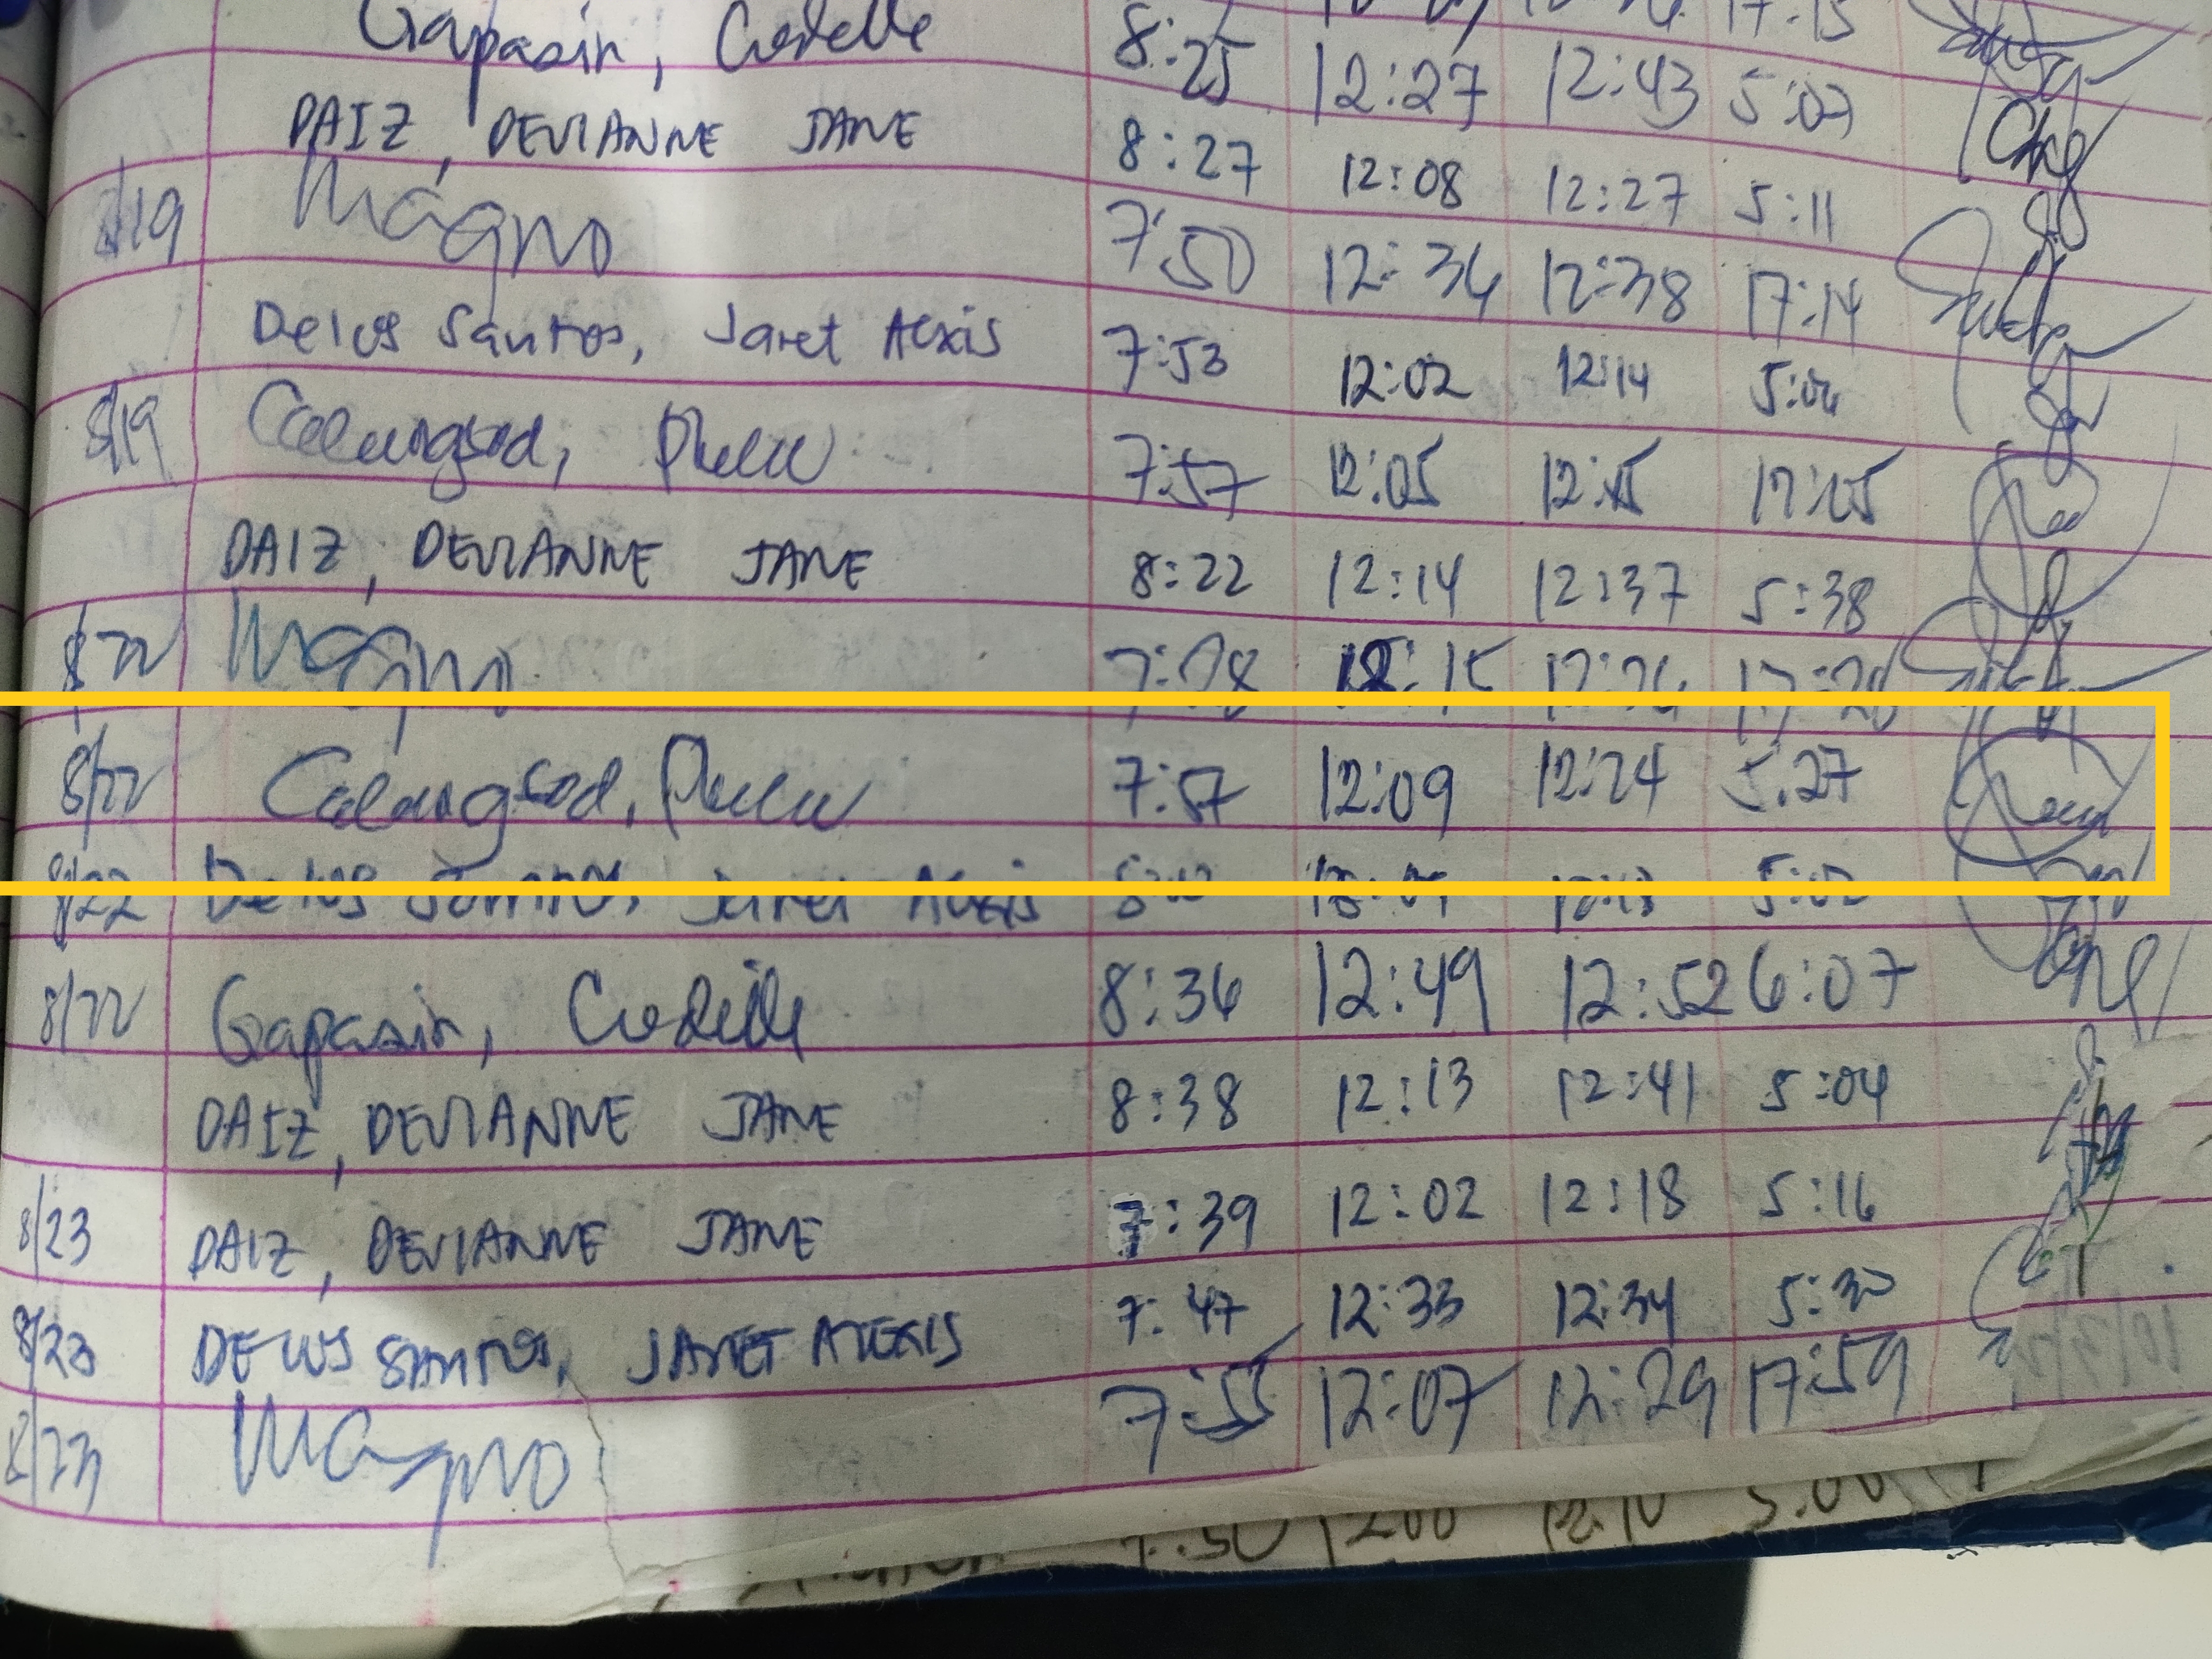 Gapasin, Credelle 8:25 12:27 12:43 5:03
DAIZ, DEVIANNE JANE 8:27 12:08 12:27 5:11
8/19 Magno 7:50 12:34 12:38 17:14
Delos Santos, Jaret Alexis 7:53 12:02 12:14 5:06
8/19 Calungsod, 7:57 12:05 12:15 17:05
DAIZ, DEVIANNE JANE 8:22 12:14 12:37 5:38
8/22 Magno 12:15 12:26 17:28
8/22 Calungsod, 7:57 12:09 12:24 5:27
8/22 Delos Santos, Jaret Alexis 12:13 5:02
8/22 Gapasin, Credelle 8:36 12:49 12:52 6:07
DAIZ, DEVIANNE JANE 8:38 12:13 12:41 5:04
8/23 DAIZ, DEVIANNE JANE 7:39 12:02 12:18 5:16
8/23 DELOS SANTOS, JARET ALEXIS 7:47 12:33 12:34 5:30
8/23 Magno 7:55 12:07 12:29 17:59
7:50 1200 12:10 5:00